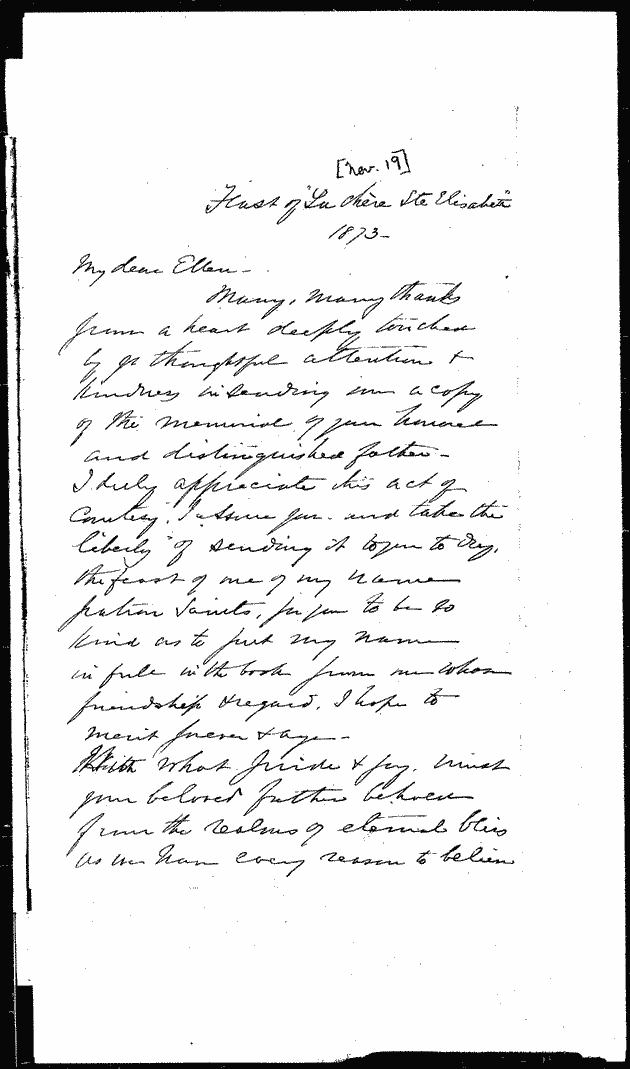 [Nov. 19]
Feast of "La chère Ste Elisabeth"
1873-
My dear Ellen-
Many, many thanks
from a heart deeply touched
by yr thoughtful attention +
kindness in sending me a copy
of the memorial of your honored
and distinguished father-
I truly appreciate this act of
Courtesy, I assure you. and take the
liberty of sending it to you to day,
the feast of one of my name
patron Saints, for you to be so
kind as to put my name
in full in the book from one whose
friendship & regard, I hope to
merit forever & aye-
With what pride & joy, must
your beloved father behold
from the realms of eternal bliss
as we have every reason to believe